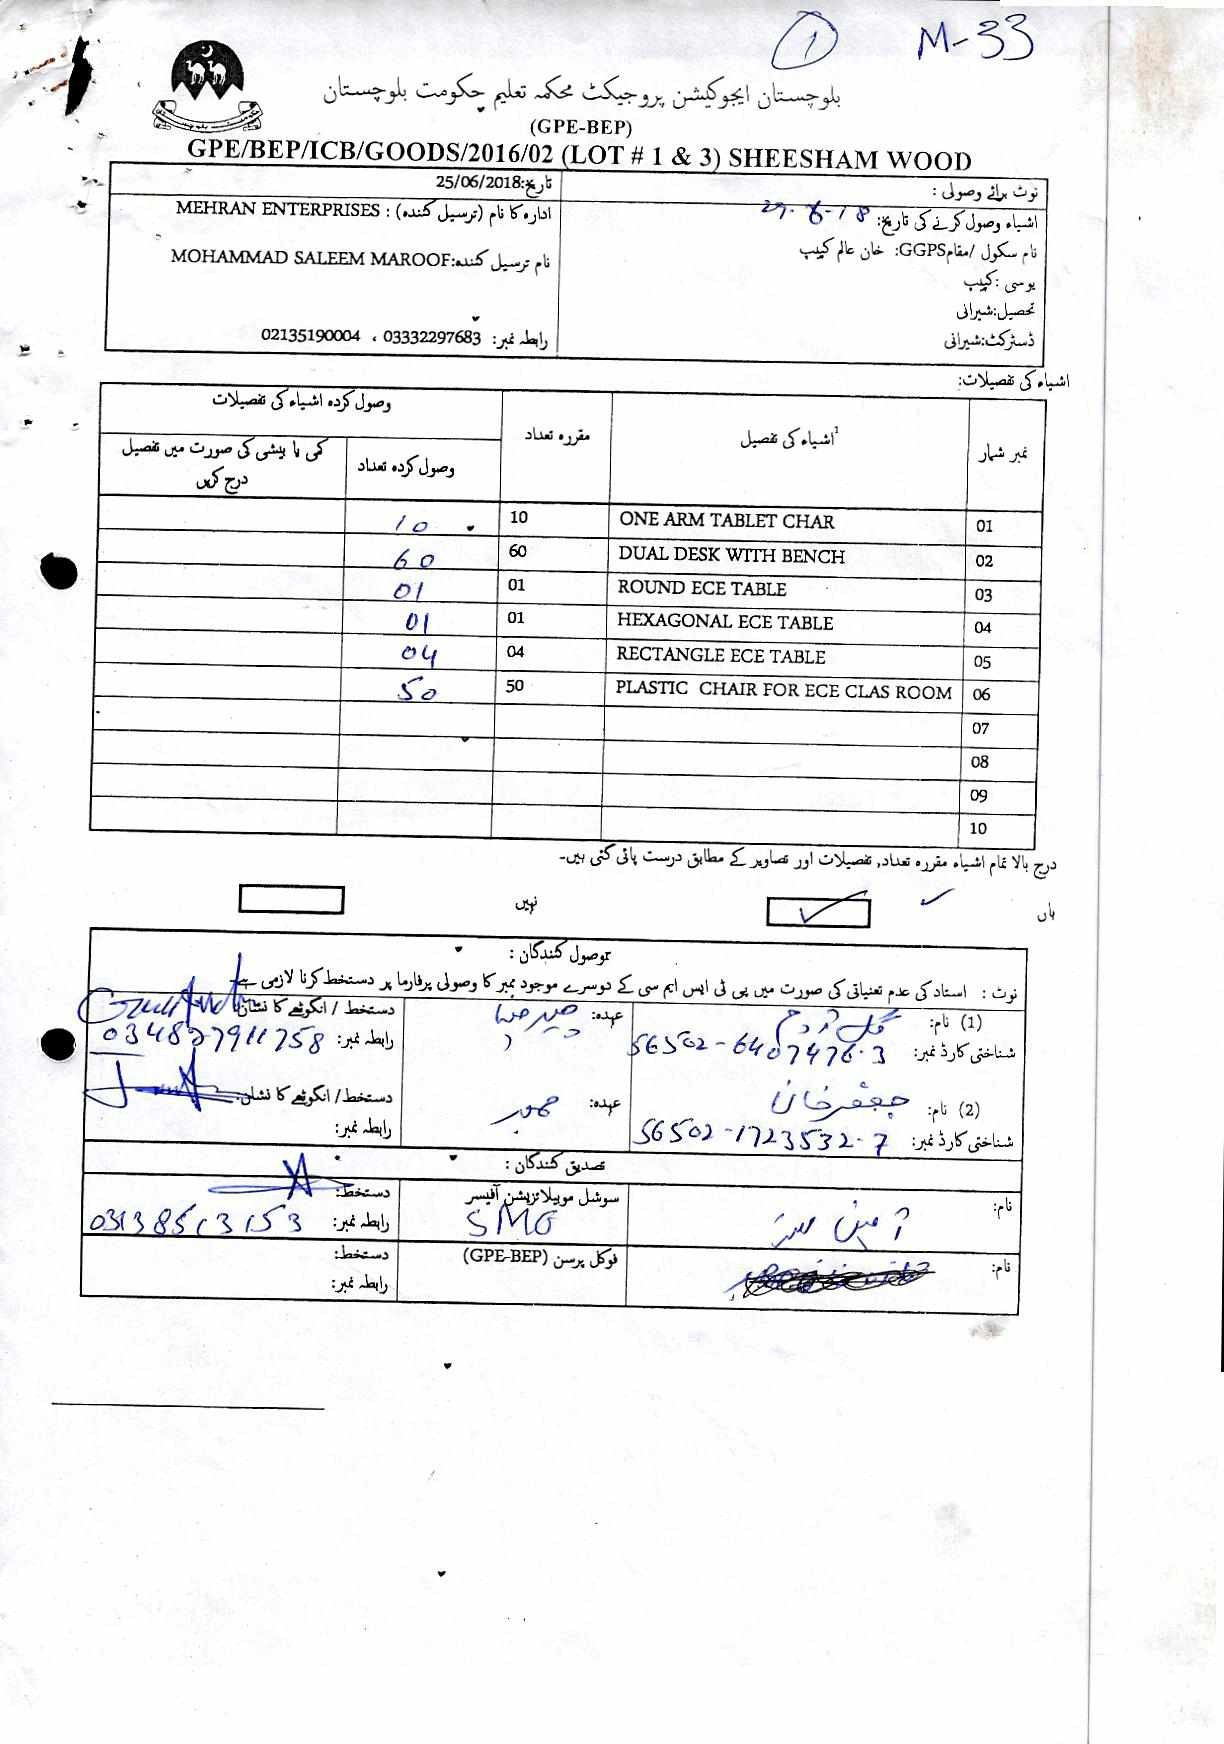 1
M-33
بلوچستان ایجوکیشن پروجیکٹ محکمہ تعلیم حکومت بلوچستان
(GPE-BEP)
GPE/BEP/ICB/GOODS/2016/02 (LOT # 1 & 3) SHEESHAM WOOD
نوٹ برائے وصولی :
تاریخ:25/06/2018
اشیاء وصول کرنے کی تاریخ: 29-6-18
ادارہ کا نام (ترسیل کنندہ) : MEHRAN ENTERPRISES
نام سکول /مقامGGPS: خان عالم کیپ
نام ترسیل کنندہ:MOHAMMAD SALEEM MAROOF
یوسی :کیپ
تحصیل:شیرانی
ڈسٹرکٹ:شیرانی
رابطہ نمبر: 03332297683 ، 02135190004
اشیاء کی تفصیلات:
نمبر شمار
اشیاء کی تفصیل1
مقررہ تعداد
وصول کردہ اشیاء کی تفصیلات
وصول کردہ تعداد
کمی یا بیشی کی صورت میں تفصیل درج کریں
01 ONE ARM TABLET CHAR 10 10
02 DUAL DESK WITH BENCH 60 60
03 ROUND ECE TABLE 01 01
04 HEXAGONAL ECE TABLE 01 01
05 RECTANGLE ECE TABLE 04 04
06 PLASTIC CHAIR FOR ECE CLAS ROOM 50 50
07
08
09
10
درج بالا تمام اشیاء مقررہ تعداد, تفصیلات اور تصاویر کے مطابق درست پائی گئی ہیں۔
ہاں ✓ نہیں
وصول کنندگان :
نوٹ : استاد کی عدم تعنیاتی کی صورت میں پی ٹی ایس ایم سی کے دوسرے موجود ممبر کا وصولی پرفارما پر دستخط کرنا لازمی ہے۔
(1) نام: گل عہدہ: دستخط / انگوٹھے کا نشان:
شناختی کارڈ نمبر: 56502-6407476-3 رابطہ نمبر: 034827911758
(2) نام: جعفر خان عہدہ: ممبر دستخط/ انگوٹھے کا نشان:
شناختی کارڈ نمبر: 56502-1723532-7 رابطہ نمبر:
تصدیق کنندگان :
نام: سوشل موبیلائزیشن آفیسر دستخط:
SMO رابطہ نمبر: 03138513153
نام: فوکل پرسن (GPE-BEP) دستخط:
رابطہ نمبر: